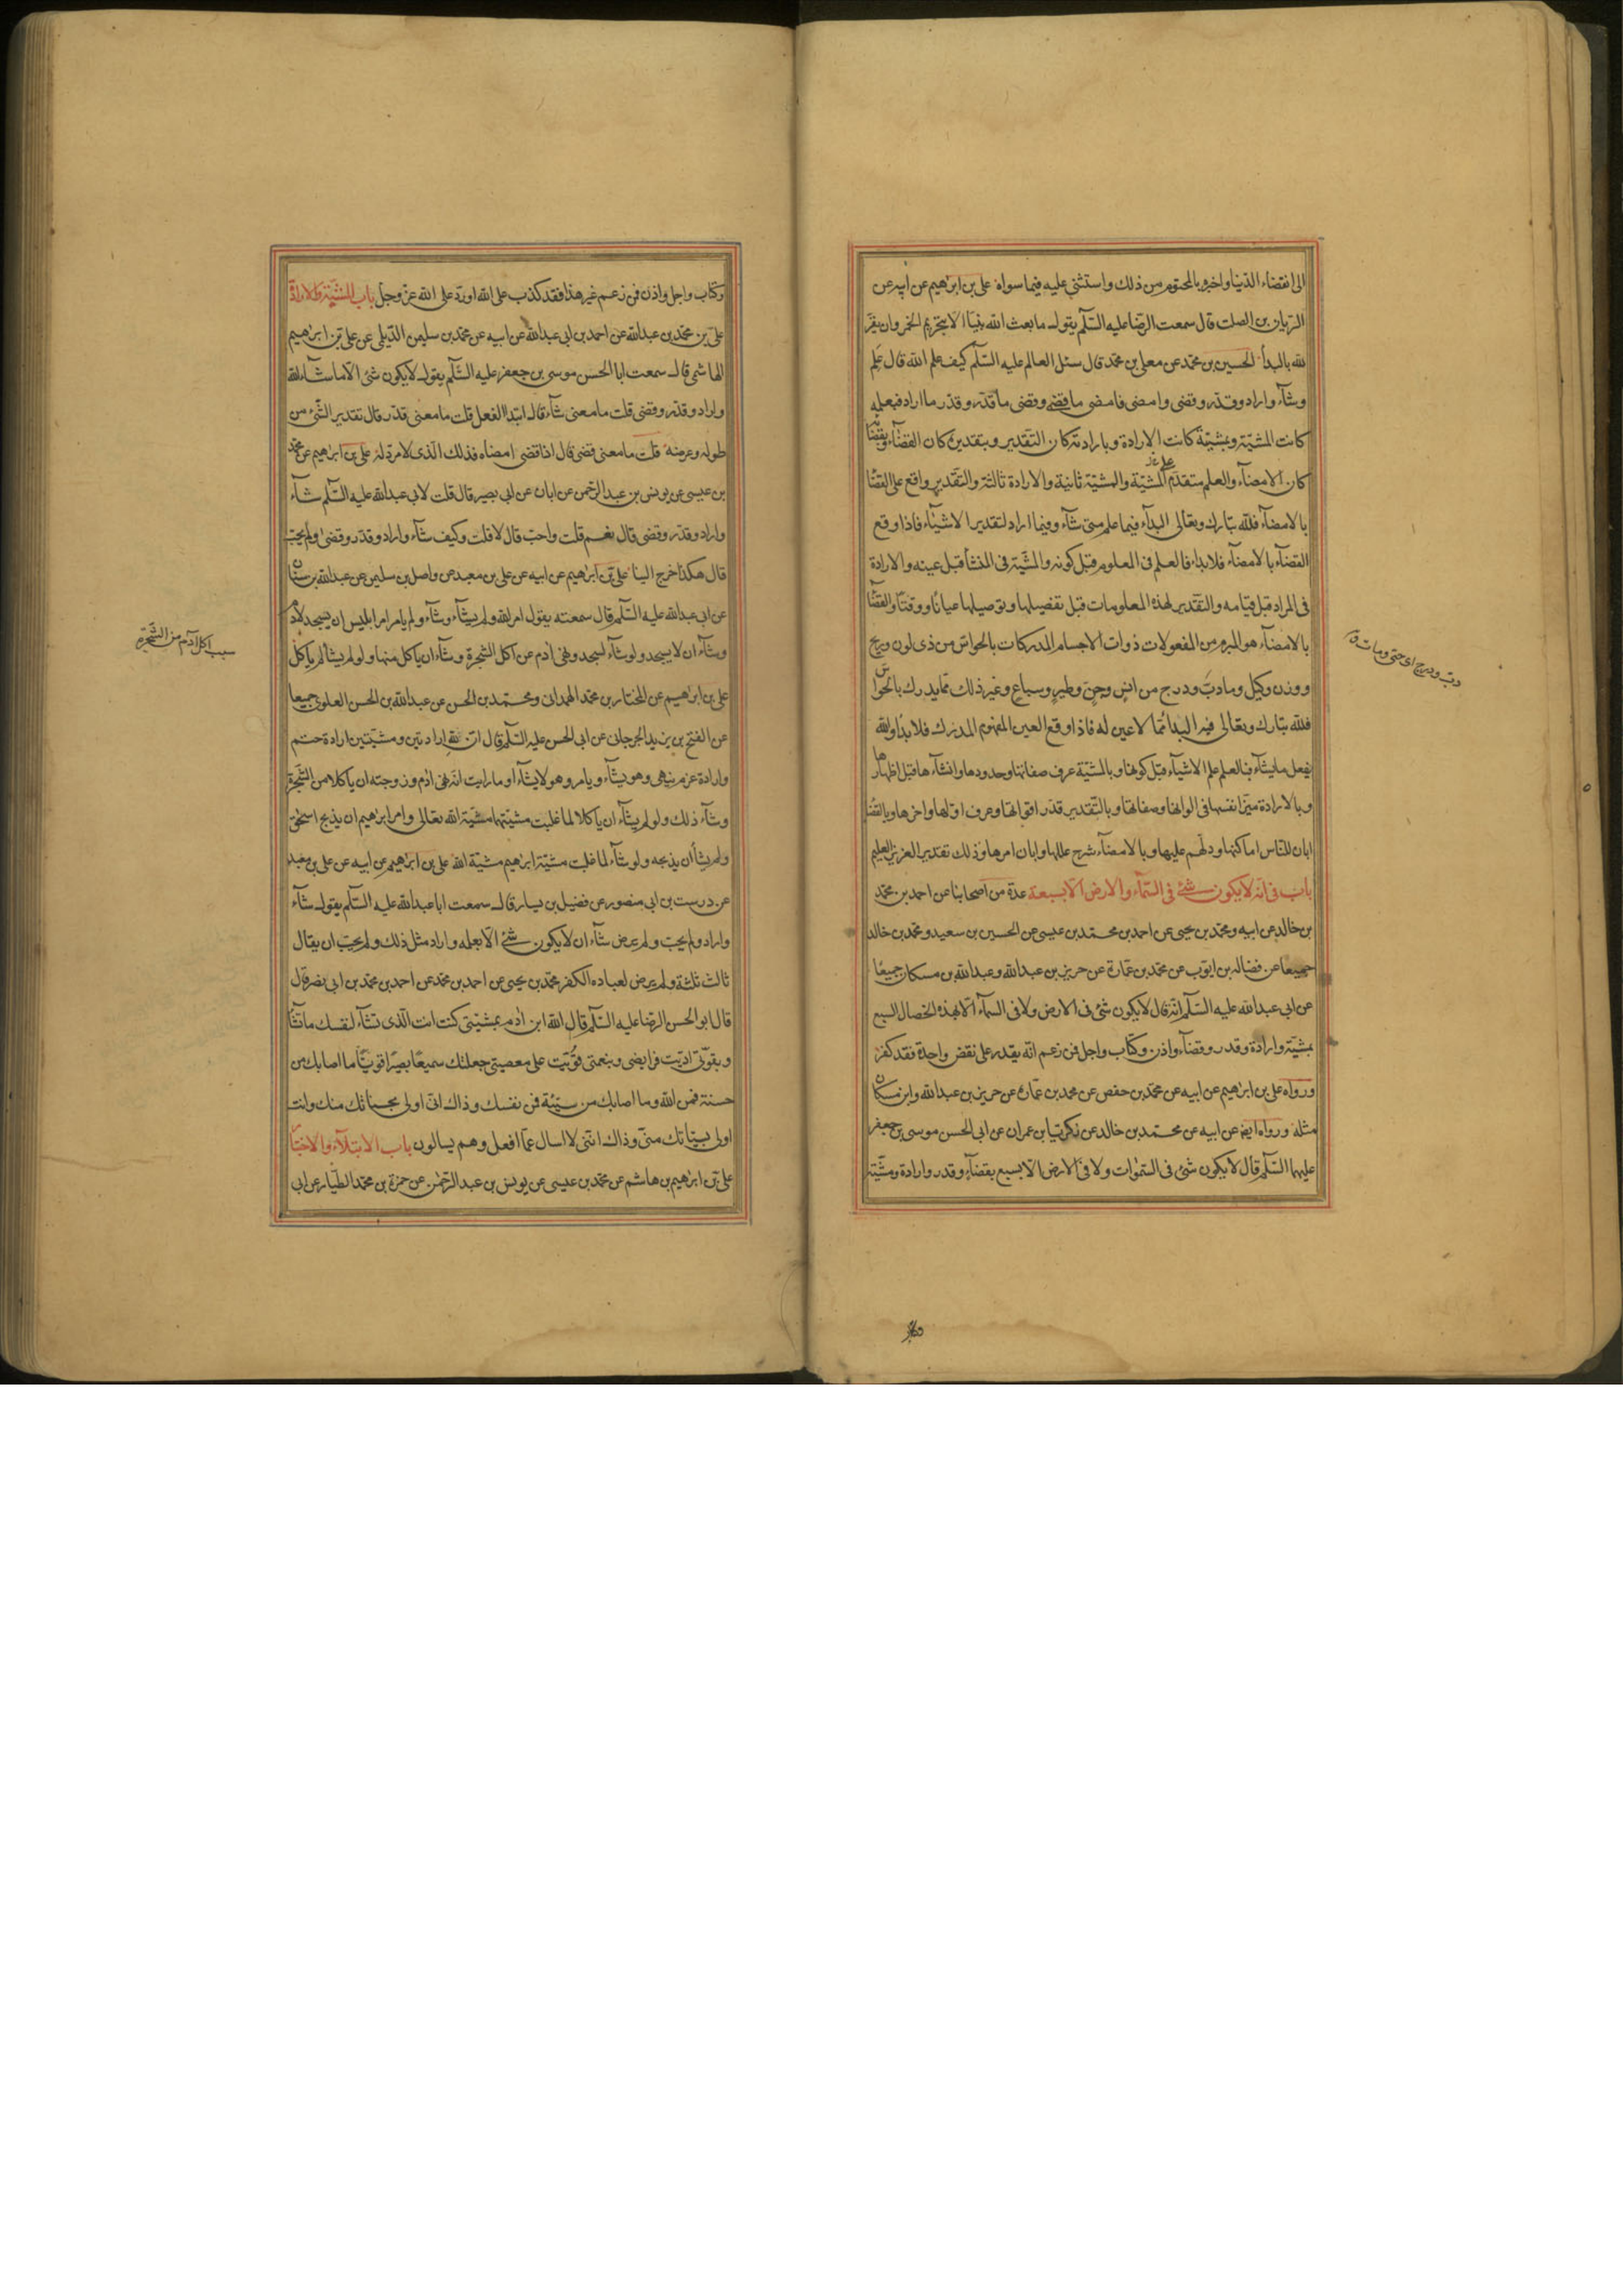 الى انقضاء الدنيا واخبره بالمحتوم من ذلك واستثنى عليه فيما سواه علي بن ابرهيم عن ابيه عن
الريان بن الصلت قال سمعت الرضا عليه السلم يقول ما بعث الله نبيا الا بتحريم الخمر وان يقر
لله بالبدأ الحسين بن محمد عن معلى بن محمد قال سئل العالم عليه السلم كيف علم الله قال علم
وشآء واراد وقدر وقضى وامضى فامضى ما قضى وقضى ما قدر وقدر ما اراد فبعلمه
كانت المشية وبمشيته كانت الارادة وبارادته كان التقدير وبتقديره كان القضآء وبقضا
كان الامضآء والعلم متقدم على المشية والمشية ثانية والارادة ثالثة والتقدير واقع على القضا
بالامضآء فلله تبارك وتعالى البدآء فيما علم متى شآء وفيما اراد لتقدير الاشيآء فاذا وقع
القضآء بالامضآء فلا بدآء فالعلم في المعلوم قبل كونه والمشية في المنشأ قبل عينه والارادة
في المراد قبل قيامه والتقدير لهذه المعلومات قبل تفصيلها وتوصيلها عيانا ووقتا والقضا
بالامضآء هو المبرم من المفعولات ذوات الاجسام المدركات بالحواس من ذى لون وريح
ووزن وكيل وما دب ودرج من انس وجن وطير وسباع وغير ذلك مما يدرك بالحواس
فلله تبارك وتعالى فيه البدآ مما لا عين له فاذا وقع العين المفهوم المدرك فلا بدآ والله
يفعل ما يشآء فبالعلم علم الاشيآء قبل كونها وبالمشية عرف صفاتها وحدودها وانشآءها قبل اظهارها
وبالارادة ميز انفسها في الوانها وصفاتها وبالتقدير قدر اقواتها وعرف اولها واخرها وبالقضا
ابان للناس اماكنها ودلهم عليها وبالامضآء شرح عللها وابان امرها وذلك تقدير العزيز العليم
باب في انه لا يكون شئ في السمآء والارض الا بسبعة عدة من اصحابنا عن احمد بن محمد
بن خالد عن ابيه ومحمد بن يحيى عن احمد بن محمد بن عيسى عن الحسين بن سعيد ومحمد بن خالد
جميعا عن فضاله بن ايوب عن محمد بن عمارة عن حريز بن عبدالله وعبدالله بن مسكان جميعا
عن ابى عبدالله عليه السلم انه قال لا يكون شئ في الارض ولا في السمآء الا بهذه الخصال السبع
بمشية وارادة وقدر وقضآء واذن وكتاب واجل فمن زعم انه يقدر على نقض واحدة فقد كفر
ورواه على بن ابرهيم عن ابيه عن محمد بن حفص عن محمد بن عمارة عن حريز بن عبدالله وابن مسكان
مثله ورواه ايضا عن ابيه عن محمد بن خالد عن زكريا بن عمران عن ابى الحسن موسى بن جعفر
عليهما السلم قال لا يكون شئ في السموات ولا في الارض الا بسبع بقضآء وقدر وارادة ومشية
دب ودرج اى حتى ومات
وكتاب واجل واذن فمن زعم غير هذا فقد كذب على الله او رد على الله عز وجل باب المشية والارادة
على بن محمد بن عبدالله عن احمد بن ابى عبدالله عن ابيه عن محمد بن سليمن الديلمى عن على بن ابرهيم
الهاشمى قال سمعت ابا الحسن موسى بن جعفر عليه السلم يقول لا يكون شئ الا ما شآء الله
واراد وقدر وقضى قلت ما معنى شآء قال ابتدا الفعل قلت ما معنى قدر قال تقدير الشئ من
طوله وعرضه قلت ما معنى قضى قال اذا قضى امضاه فذلك الذى لا مرد له على بن ابرهيم عن محمد
بن عيسى عن يونس بن عبد الرحمن عن ابان عن ابى بصير قال قلت لابى عبدالله عليه السلم شآء
واراد وقدر وقضى قال نعم قلت واحب قال لا قلت وكيف شآء واراد وقدر وقضى ولم يحب
قال هكذا خرج الينا على بن ابرهيم عن ابيه عن على بن معبد عن واصل بن سليمن عن عبدالله بن سنان
عن ابى عبدالله عليه السلم قال سمعته يقول امر الله ولم يشآء وشآء ولم يامر امر ابليس ان يسجد لادم
وشآء ان لا يسجد ولو شآء لسجد ونهى ادم عن اكل الشجرة وشآء ان ياكل منها ولو لم يشا لم ياكل
على بن ابرهيم عن المختار بن محمد الهمدانى ومحمد بن الحسن عن عبدالله بن الحسن العلوى جميعا
عن الفتح بن يزيد الجرجانى عن ابى الحسن عليه السلم قال ان لله ارادتين ومشيتين ارادة حتم
وارادة عزم ينهى وهو يشآء ويامر وهو لا يشآء او ما رايت انه نهى ادم وزوجته ان ياكلا من الشجرة
وشآء ذلك ولو لم يشآء ان ياكلا لما غلبت مشيتهما مشية الله تعالى وامر ابرهيم ان يذبح اسحق
ولم يشا ان يذبحه ولو شآء لما غلبت مشية ابرهيم مشية الله على بن ابرهيم عن ابيه عن على بن معبد
عن درست بن ابى منصور عن فضيل بن يسار قال سمعت ابا عبدالله عليه السلم يقول شآء
واراد ولم يحب ولم يرض شآء ان لا يكون شئ الا بعلمه واراد مثل ذلك ولم يحب ان يقال
ثالث ثلثة ولم يرض لعباده الكفر محمد بن يحيى عن احمد بن محمد عن احمد بن محمد بن ابى نصر قال
قال ابو الحسن الرضا عليه السلم قال الله ابن ادم بمشيتى كنت انت الذى تشآء لنفسك ما تشآ
وبقوتى اديت فرايضى وبنعمتى قويت على معصيتى جعلتك سميعا بصيرا قويا ما اصابك من
حسنة فمن الله وما اصابك من سيئة فمن نفسك وذاك انى اولى بحسناتك منك وانت
اولى بسيئاتك منى وذاك اننى لا اسال عما افعل وهم يسالون باب الابتلآء والاختبآ
على بن ابرهيم بن هاشم عن محمد بن عيسى عن يونس بن عبد الرحمن عن حمزة بن محمد الطيار عن ابى
سبب اكل آدم من الشجرة